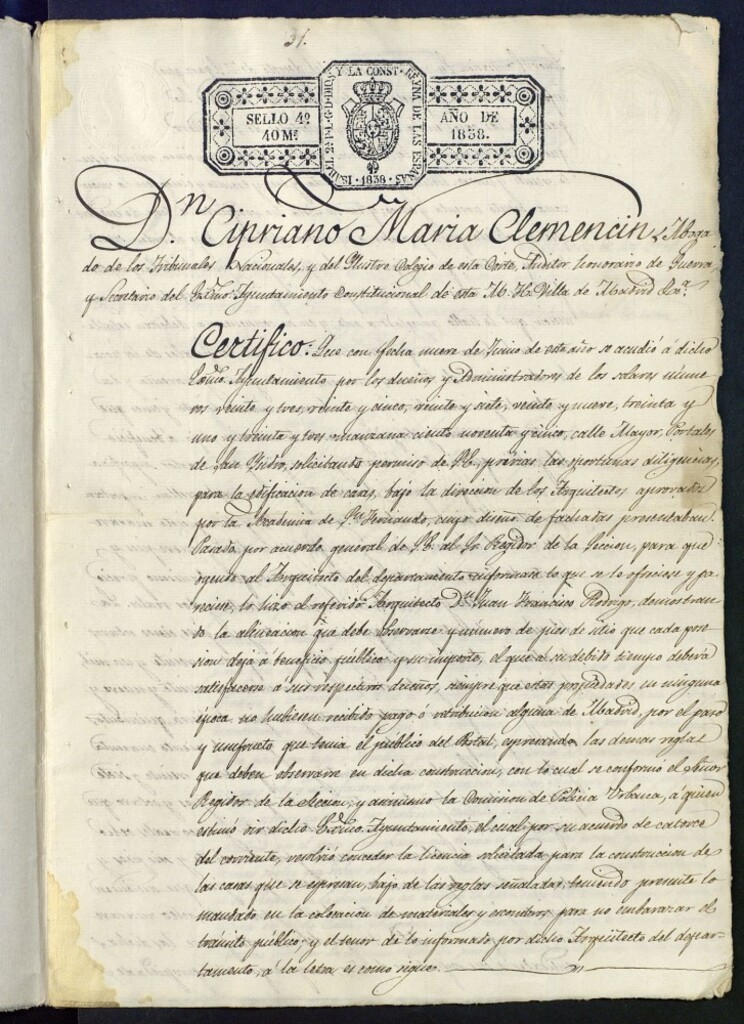 31.
SELLO 4º
40 Ms
ISABEL 2ª P.L.G.D DIOS Y LA CONST. REYNA DE LAS ESPAÑAS
· 1838 ·
AÑO DE
1838.
Dn Cipriano Maria Clemencin, Aboga-
do de los Tribunales Nacionales, y del Ilustre Colegio de esta Corte, Auditor honorario de Guerra,
y Secretario del Excmo. Ayuntamiento Constitucional de esta M. H. Villa de Madrid
Certifico: Que con fecha nueve de Junio de este año se acudió á dicho
Excmo. Ayuntamiento por los dueños y Administradores de los solares núme-
ros veinte y tres, veinte y cinco, veinte y siete, veinte y nueve, treinta y
uno y treinta y tres manzana ciento noventa y cinco, calle Mayor, Portales
de San Ysidro, solicitando permiso de S.E., previas las oportunas diligencias,
para la edificacion de casas, bajo la direccion de los Arquitectos aprovados
por la Academia de Sn Fernando, cuyo diseño de fachadas presentaban.
Pasada por acuerdo general de S.E. al Sr. Regidor de la Seccion, para que
oyendo al Arquitecto del departamento informara lo que se le ofreciese y pa-
reciere, lo hizo el referido Arquitecto Dn Juan Francisco Rodrigo, demostran-
do la alineacion qia debe observarse y número de pies de sitio que cada pose-
sion deja á beneficio público y su importe, el que á su debido tiempo deberá
satisfacerse á sus respectivos dueños, siempre que estas propiedades en ninguna
época no hubiesen recibido pago ó retribucion alguna de Madrid, por el paso
y usufructo que tenia el público del Portal, espresando las demas reglas
que deben observarse en dicha construccion, con lo cual se conformó el Señor
Regidor de la Seccion, y asimismo la Comision de Policia Urbana, á quien
estimó oir dicho Excmo. Ayuntamiento, el cual por su acuerdo de catorce
del corriente, resolvió conceder la licencia solicitada para la construccion de
las casas que se espresan, bajo de las reglas señaladas, teniendo presente lo
mandado en la colocacion de materiales y escombros para no embarazar el
tránsito público; y el tenor de lo informado por dicho Arquitecto del depar-
tamento, á la letra es como sigue.